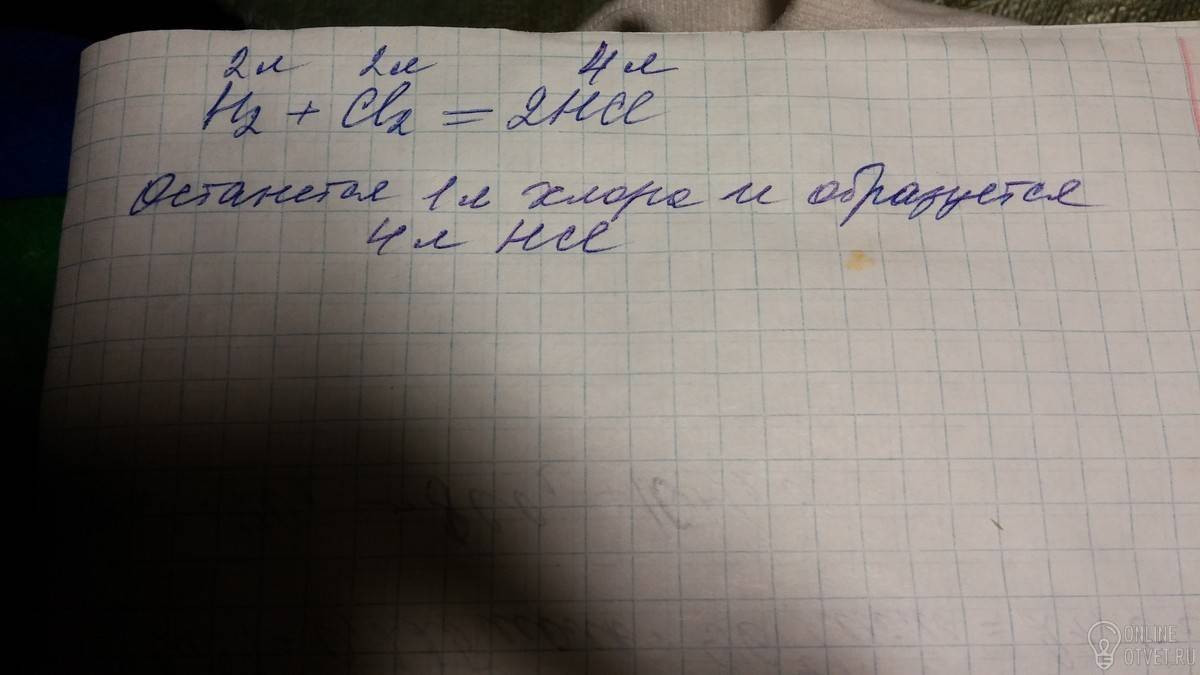 2л 2л 4л
H₂ + Cl₂ = 2HCl
Останется 1л хлора и образуется
4л HCl
ONLINE
OTVET.RU